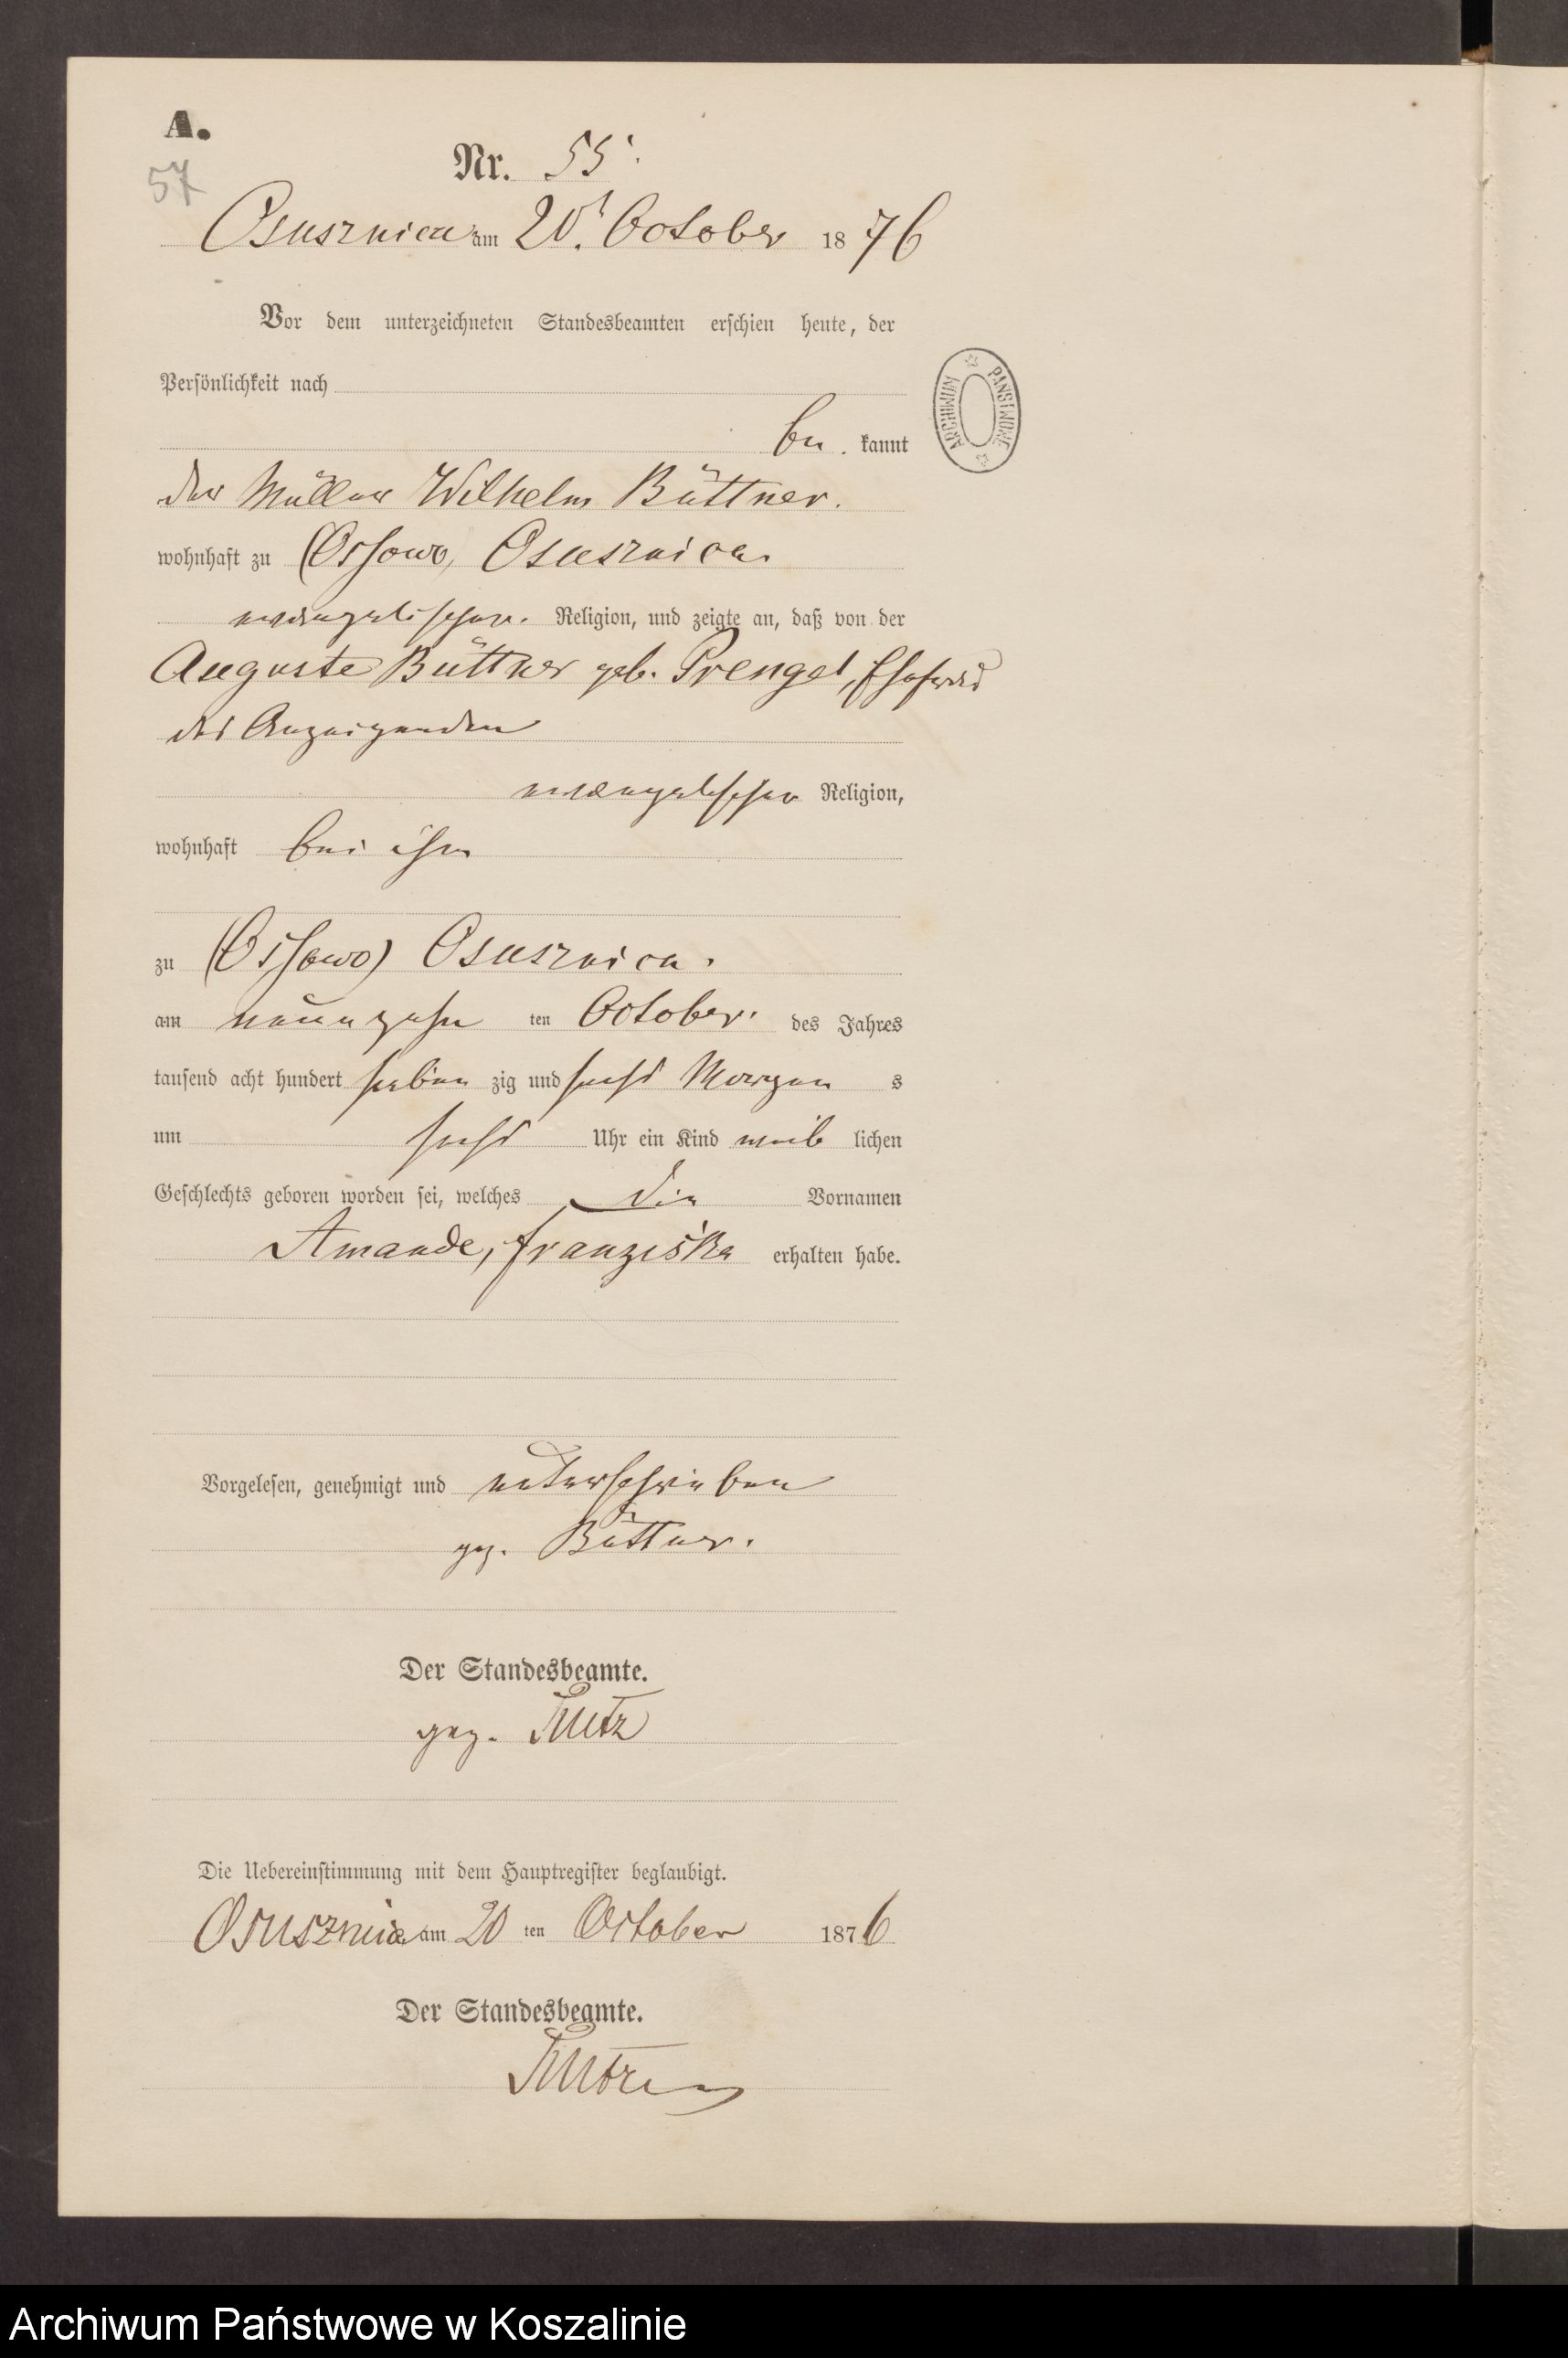 A.
57
Nr. 55.
Osusznica am 20t. October 1876
Vor dem unterzeichneten Standesbeamten erschien heute, der
Persönlichkeit nach
be kannt
der Müller Wilhelm Büttner.
wohnhaft zu (Ossowo) Osusznica.
evangelischer. Religion, und zeigte an, daß von der
Auguste Büttner geb. Prengel, Ehefrau
des Anzeigenden
evangelischer Religion,
wohnhaft bei ihm
zu (Ossowo) Osusznica.
am neunzehn ten October. des Jahres
tausend acht hundert sieben zig und sechs Morgen s
um sechs Uhr ein Kind weib lichen
Geschlechts geboren worden sei, welches die Vornamen
Amande, Franziska erhalten habe.
Vorgelesen, genehmigt und unterschrieben
gez. Büttner.
Der Standesbeamte.
gez.
Die Uebereinstimmung mit dem Hauptregister beglaubigt.
Osusznica am 20 ten October 1876
Der Standesbeamte.
ARCHIWUM PAŃSTWOWE
Archiwum Państwowe w Koszalinie